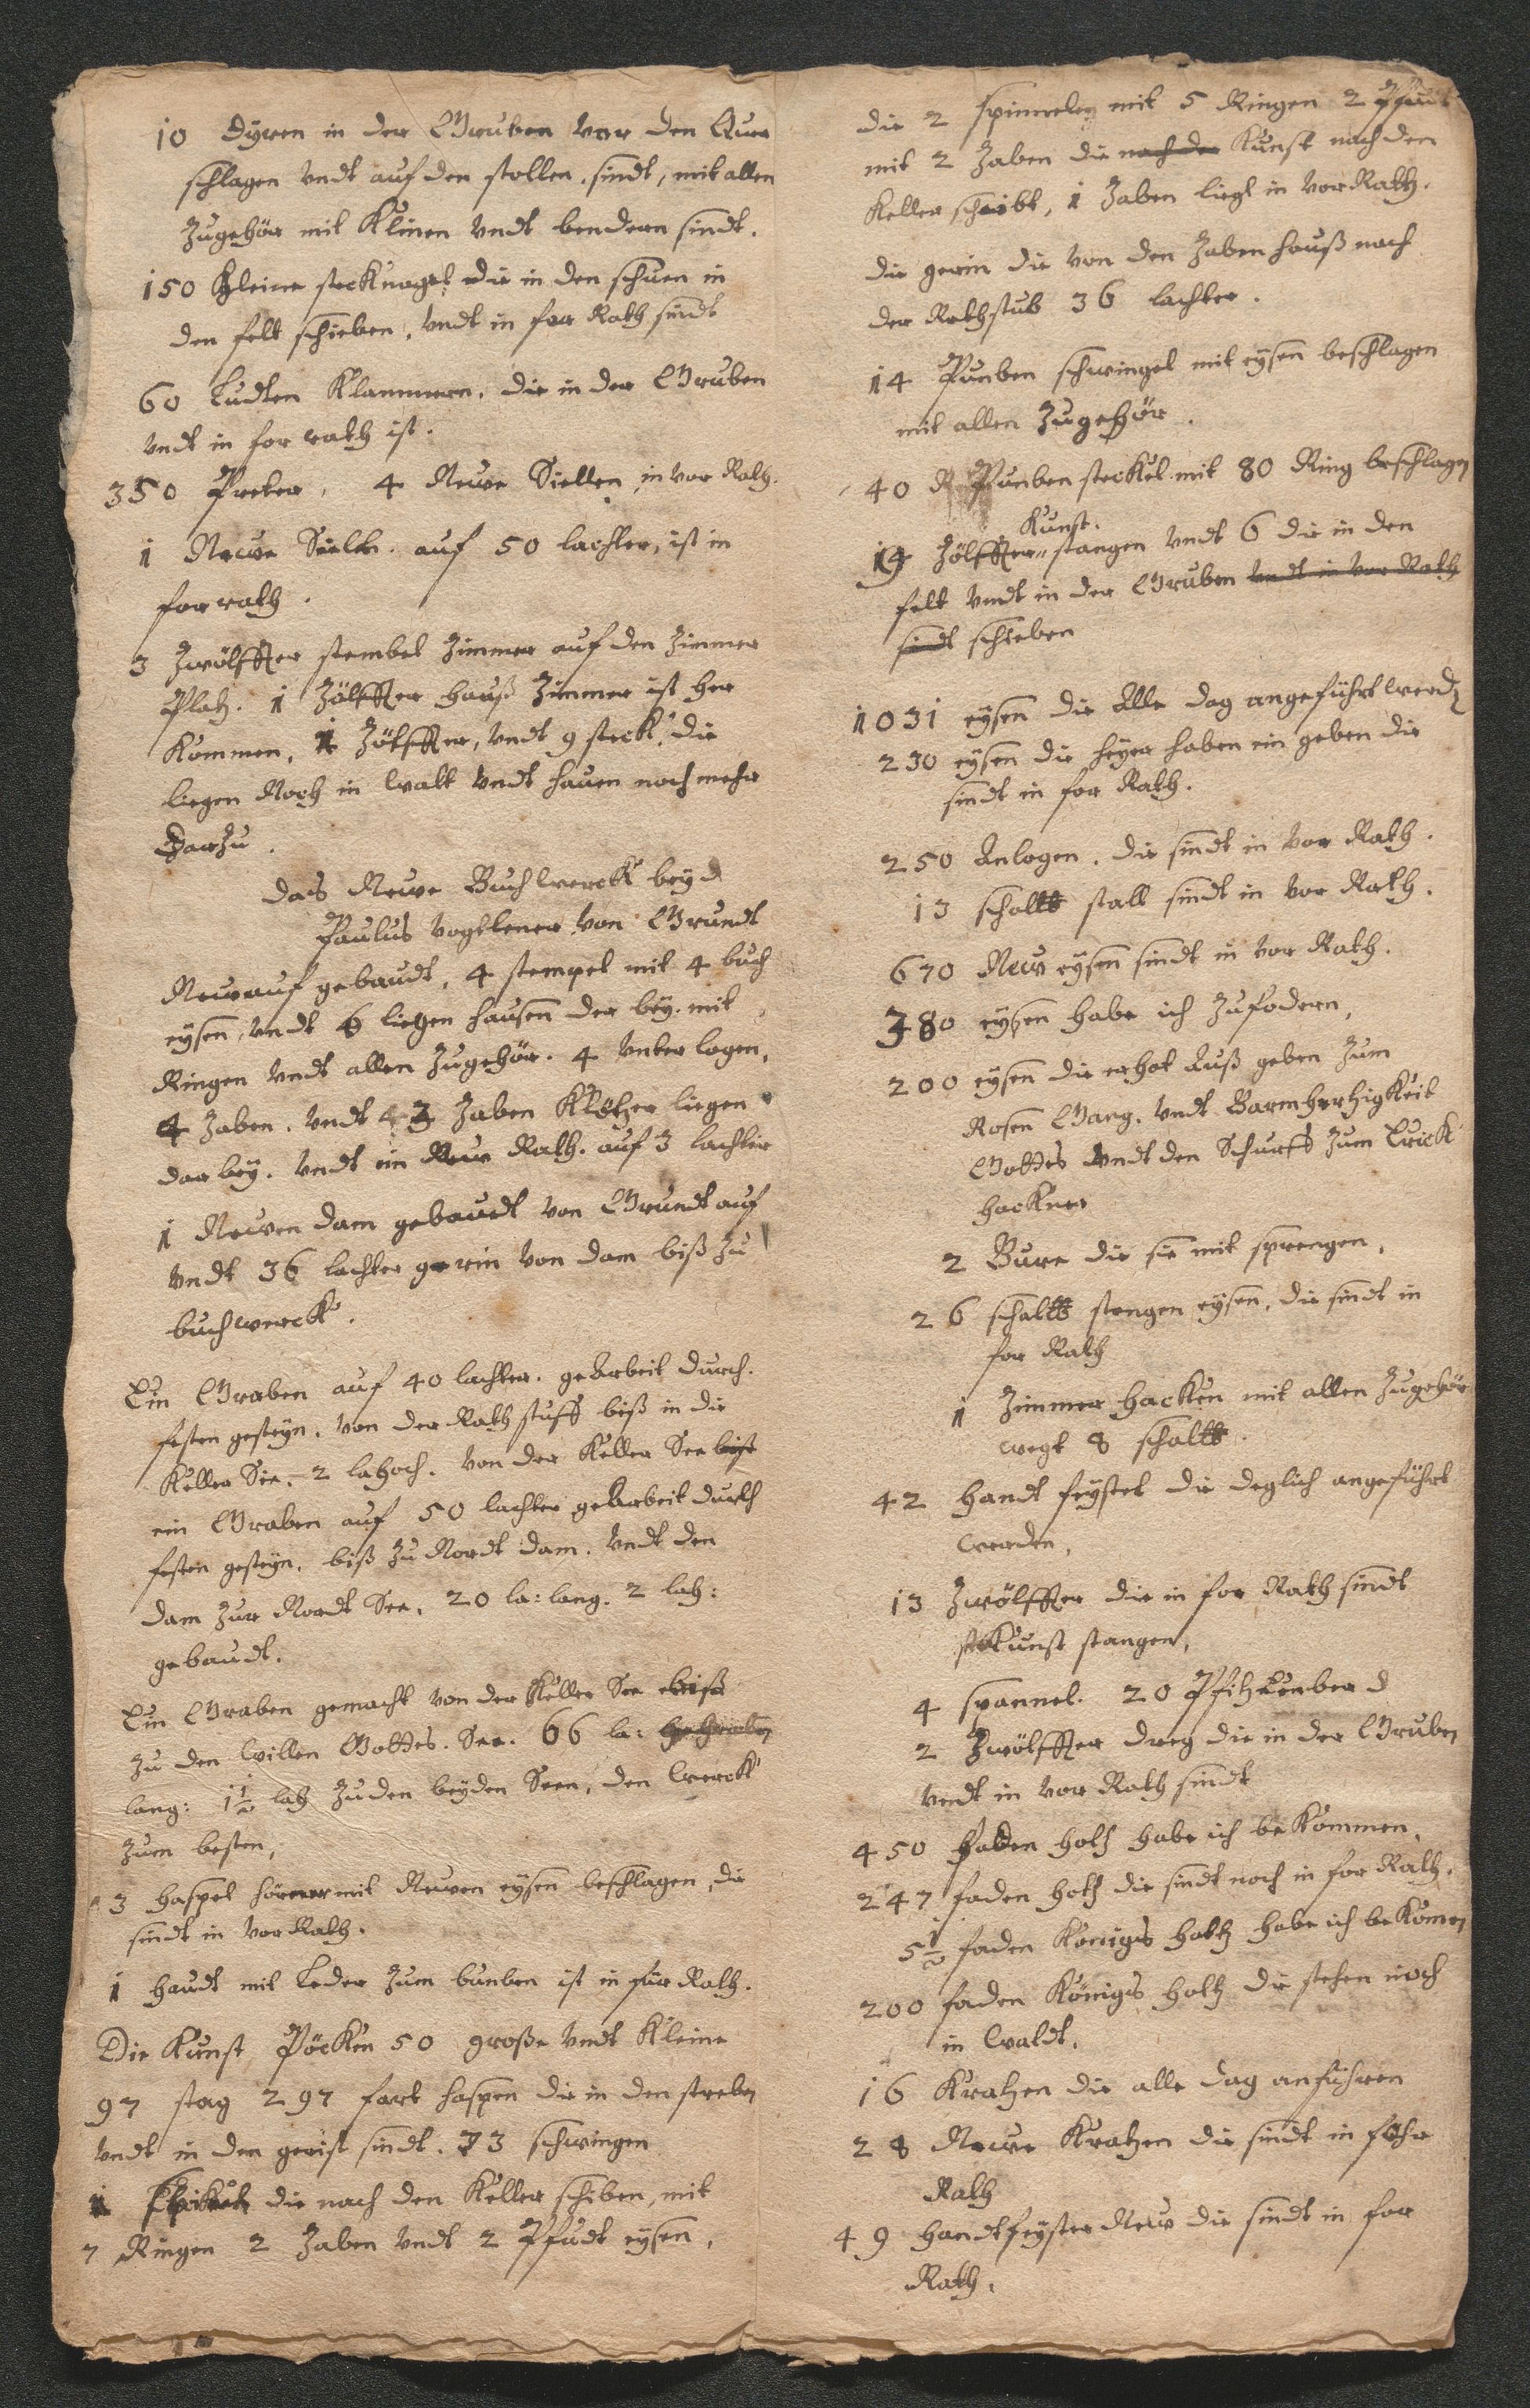 10 Dyren in der Gruben vor den Quer
schlagen vndt auf den stollen sindt, mit allen
Zugehör mit Klinen vndt bendern sindt.
150 Kleine stecknagel die in den schuen in
den felt schieben, vndt in for Rath sindt
60 Ludten Klammern, die in der Gruben
vndt in for rath ist.
350 Preter, 4 Neuwe Siellen in vor Rath.
1 Neuwe Sielen auf 50 lachter, ist in
for rath.
3 Zwölffter stembel Zimmer auf den Zimmer
Platz. 1 Zölffter hauß Zimmer ist her
Kommen, 1 Zölffter, vndt 9 steck die
liegen Noch in walt vndt hauen noch mehr
Darzu.
das Neuwe Buchwerck bey d
Paulus vogtlener von Grundt
Neuw auf gebaudt, 4 stempel mit 4 buch
eysen, vndt 6 liegen hausen der bey. mit
Ringen vndt allen Zugehör. 4 vnter logen,
4 Zaben. vndt 42 Zaben Klötzer liegen
dar bey. vndt ein Neuw Rath. auf 3 lachter
1 Neuwen dam gebaudt von Grundt auf
vndt 36 lachter gerin von dam biß zu
buchwerck.
Ein Graben auf 40 lachter. geArbeit durch.
festen gesteyn, von der Rathstuff biß in die
Keller See. 2 la hoch. von der Keller See bist
ein Graben auf 50 lachter geArbeit durch
festen gesteyn, biß zu Nordt dam. vndt den
dam zur Nordt See, 20 la: lang. 2 lah:
gebaudt.
Ein Graben gemacht von der Keller See biß
zu den willen Gottes. See. 66 la:
lang: 1½ lah zu den beyden Seen, den werck
zum besten,
3 haspel hörner mit Neuwen eysen beschlagen, die
sindt in vor Rath.
1 haudt mit Leder zum bunben ist in für Rath.
Die Kunst Pöcken 50 große vndt Kleine
97 stag 297 fart haspen die in den streben
vndt in den gerist sindt. 73 schwingen
1 die nach den Keller schiben, mit
7 Ringen 2 Zaben vndt 2 Pfudt eysen,
die 2 spinnelen mit 5 Ringen 2 Pfudt
mit 2 Zaben die nach der Kunst nach den
Keller schiebt, 1 Zaben liegt in vor Rath.
die gerin die von den Zaben hauß nach
der Rathstub 36 lachter.
14 Punben schwingel mit eysen beschlagen
mit allen Zugehör.
40 Punben steckel mit 80 Ring beschlagen
Kunst.
19 Zölffter stangen vndt 6 die in den
felt vndt in der Gruben vndt in vor Rath
sindt schieben
1031 eysen die Alle dag angeführt werdn
230 eysen die heyer haben ein geben die
sindt in for Rath.
250 Anlogen. die sindt in vor Rath.
13 stall sindt in vor Rath.
670 New eysen sindt in vor Rath.
380 eysen habe ich zufodern,
200 eysen die er hat Auß geben zum
Rosen Garg. vndt Barmhertzigkeit
Gottes vndt den Schurff zum Erick
hackner
2 Bure die sie mit sprengen,
26 stangen eysen, die sindt in
for Rath
1 Zimmer hacken mit allen Zugehör
wegt 8
42 handt feystel die deglich angeführt
werden,
13 Zwölffter die in for Rath sindt
Kunst stangen,
4 spannel. 20
2 Zwölffter dreg die in der Gruben
vndt in vor Rath sindt
450 faden holtz habe ich bekommen,
247 faden holtz die sindt noch in for Rath.
5½ faden Königs holtz habe ich bekomen
200 faden Königs holtz die stehen noch
in waldt.
16 Kratzen die alle dag anführen
28 Neuwe Kratzen die sindt in fohr
Rath
49 handtfeyster Neuw die sindt in for
Rath.